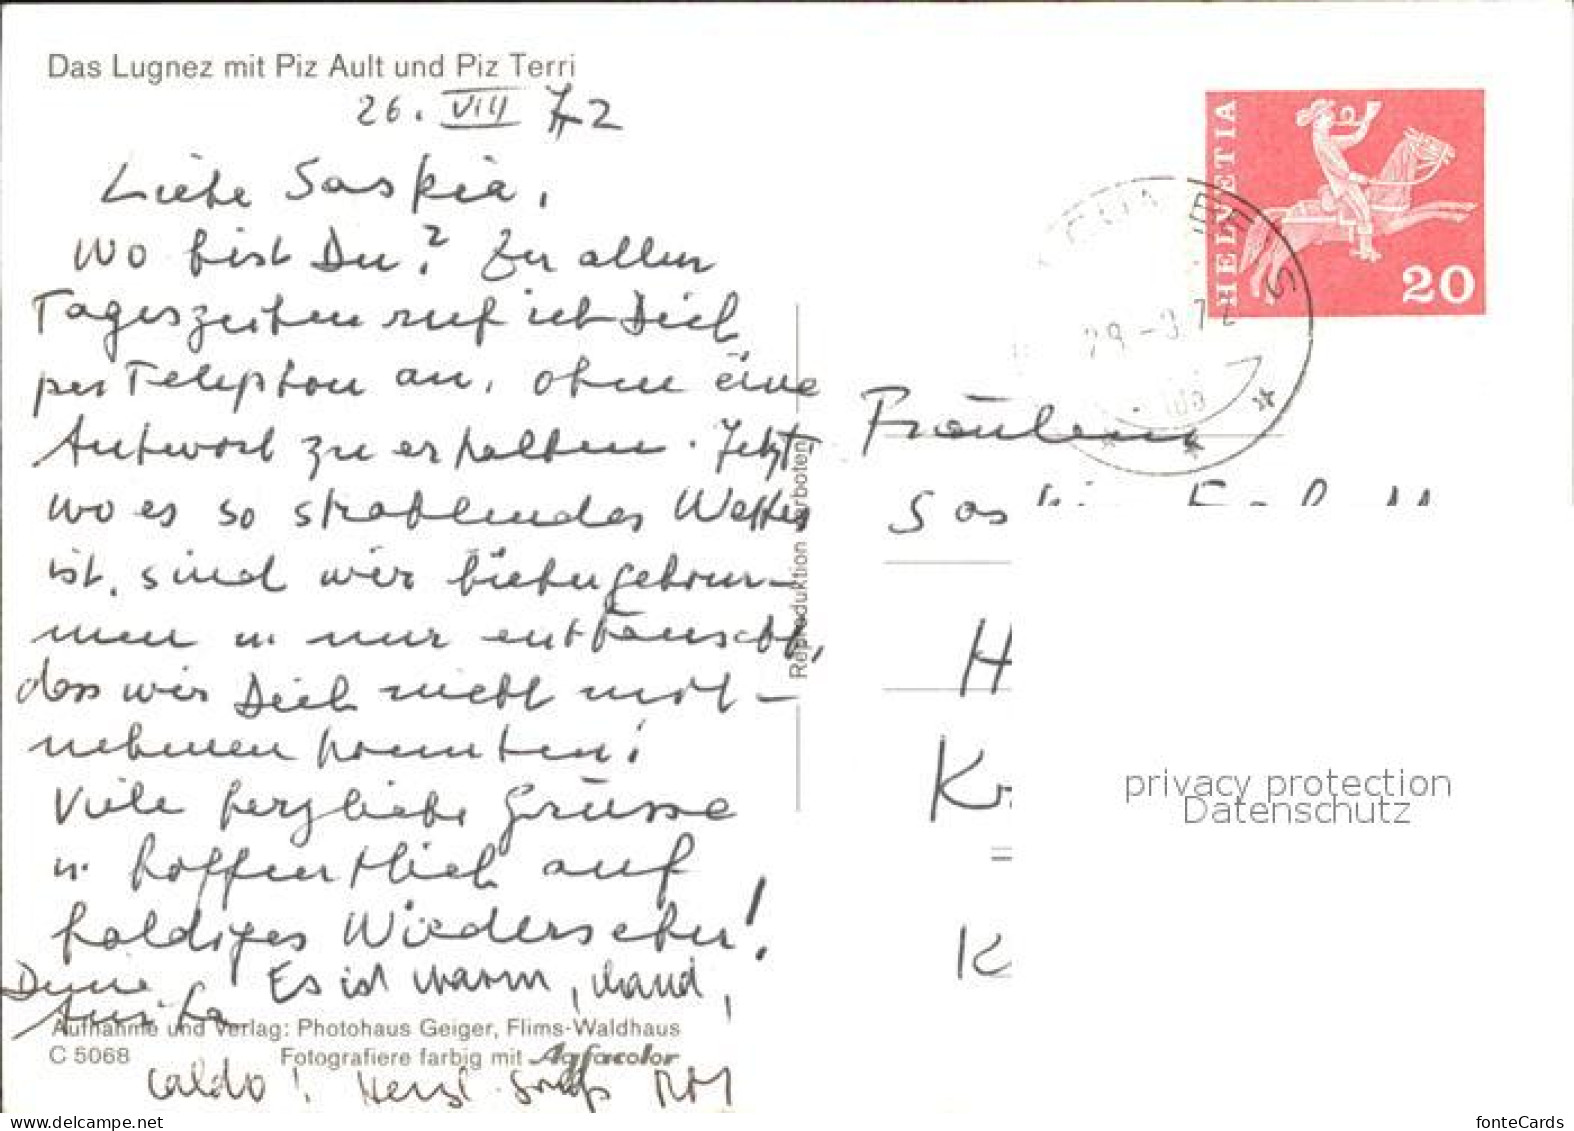 Das Lugnez mit Piz Ault und Piz Terri
26. VIII 72
Liebe Saskia,
wo bist Du? Zu allen
Tageszeiten ruf ich Dich
per Telephon an, ohne eine
Antwort zu erhalten. Jetzt
wo es so strahlendes Wetter
ist, sind wir hiehergekom-
men u. nur enttäuscht,
dass wir Dich nicht mit-
nehmen konnten!
Viele herzliche Grüsse
u. hoffentlich auf
baldiges Wiedersehen!
Deine
Es ist warm,
Aufnahme und Verlag: Photohaus Geiger, Flims-Waldhaus
C 5068 Fotografiere farbig mit Agfacolor
caldo! Herzl. Gruß
Reproduktion verboten
HELVETIA
20
Fräulein
Saskia
H
Kr
K
privacy protection
Datenschutz
www.delcampe.net
fonteCards